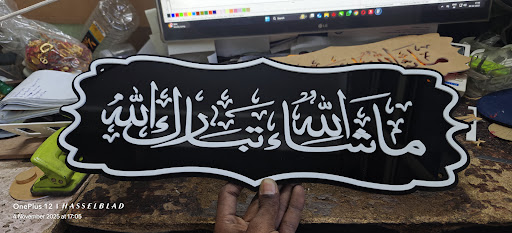 ما شاء الله تبارك الله
OnePlus 12 | HASSELBLAD
4 November 2025 at 17:05